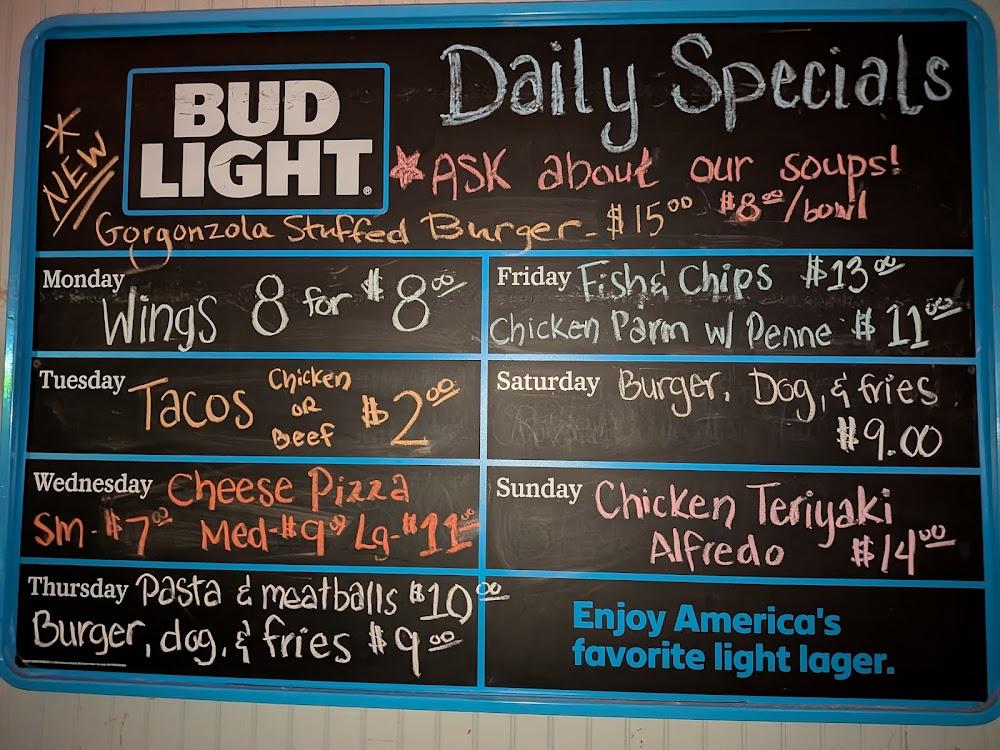 Daily Specials
BUD
LIGHT®
* NEW
*ASK about our soups!
$8.00/bowl
Gorgonzola Stuffed Burger - $15.00
Monday
Wings 8 for $8.00
Tuesday
Tacos Chicken
OR
Beef
$2.00
Wednesday Cheese Pizza
Sm-$7.00 Med-$9.00 Lg-$11.00
Thursday Pasta & meatballs $10.00
Burger, dog, & fries $9.00
Friday Fish & Chips $13.00
Chicken Parm w/ Penne $11.00
Saturday Burger, Dog, & fries
$9.00
Sunday Chicken Teriyaki
Alfredo $14.00
Enjoy America's
favorite light lager.